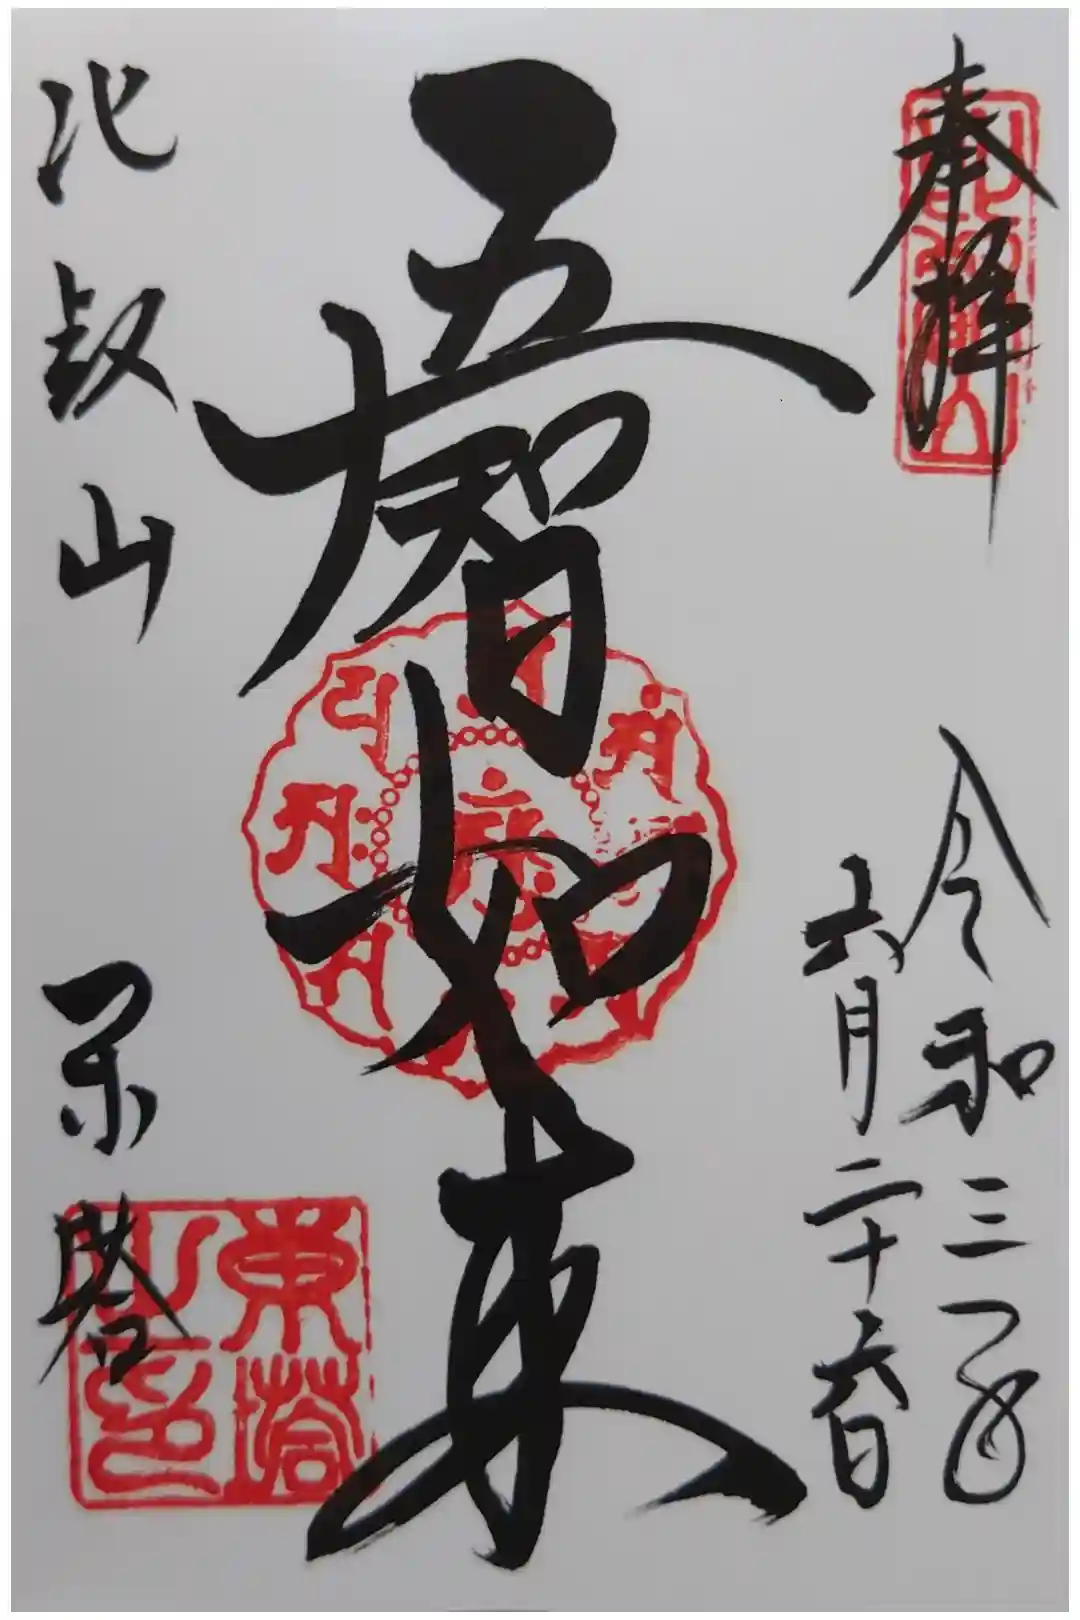 奉拝
令和三年
六月二十六日
五智如来
比叡山
東塔
東塔
印